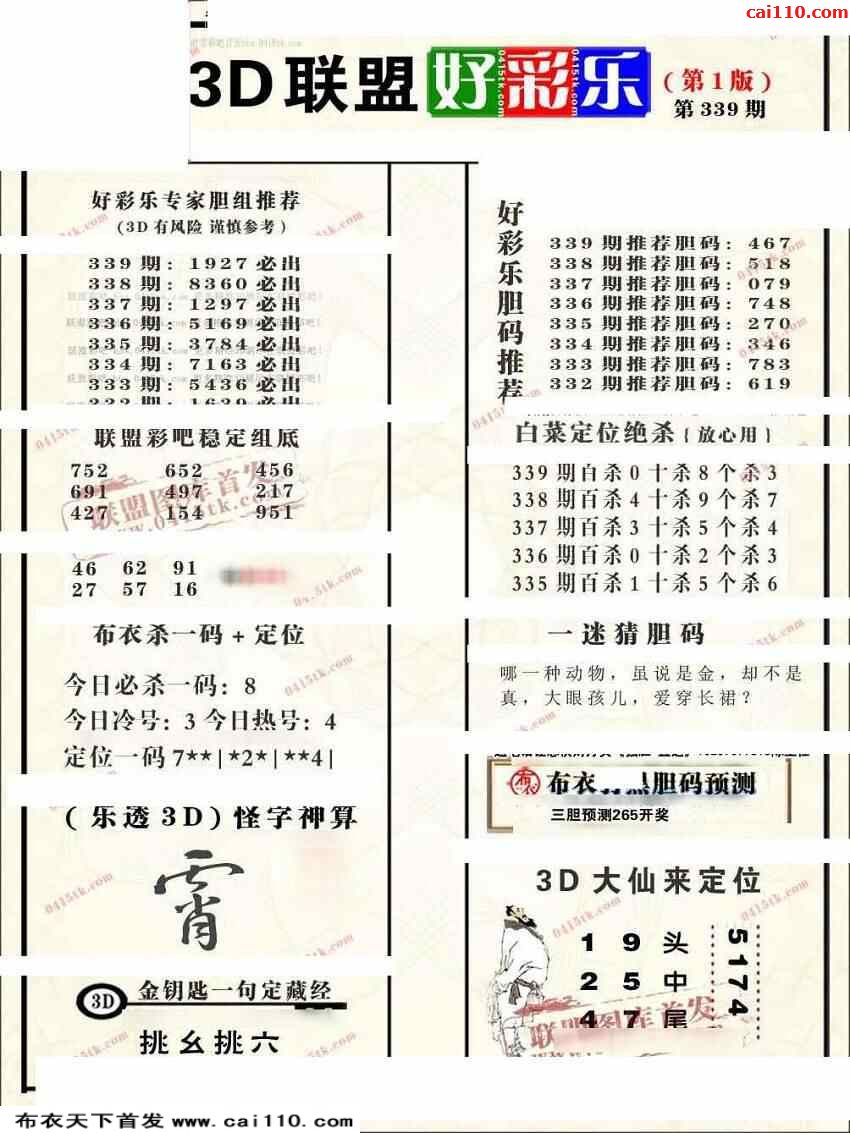 cai110.com
3D联盟好彩乐
(第1版)
第339期
好彩乐专家胆组推荐
(3D有风险 谨慎参考)
339期: 1927必出
338期: 8360必出
337期: 1297必出
336期: 5169必出
335期: 3784必出
334期: 7163必出
333期: 5436必出
332期: 1639必出
联盟彩吧稳定组底
752 652 456
691 497 217
427 154 951
联盟图库首发
46 62 91
27 57 16
布衣杀一码+定位
今日必杀一码: 8
今日冷号: 3 今日热号: 4
定位一码 7**|*2*|**4|
(乐透3D)怪字神算
霄
3D 金钥匙一句定藏经
挑幺挑六
好彩乐胆码推荐
339期推荐胆码: 467
338期推荐胆码: 518
337期推荐胆码: 079
336期推荐胆码: 748
335期推荐胆码: 270
334期推荐胆码: 346
333期推荐胆码: 783
332期推荐胆码: 619
白菜定位绝杀{放心用}
339期百杀0十杀8个杀3
338期百杀4十杀9个杀7
337期百杀3十杀5个杀4
336期百杀0十杀2个杀3
335期百杀1十杀5个杀6
一迷猜胆码
哪一种动物，虽说是金，却不是
真，大眼孩儿，爱穿长裙？
布衣 胆码预测
三胆预测265开奖
3D大仙来定位
1 9 头
2 5 中
4 7 尾
5174
联盟图库首发
0415tk.com
布衣天下首发 www.cai110.com